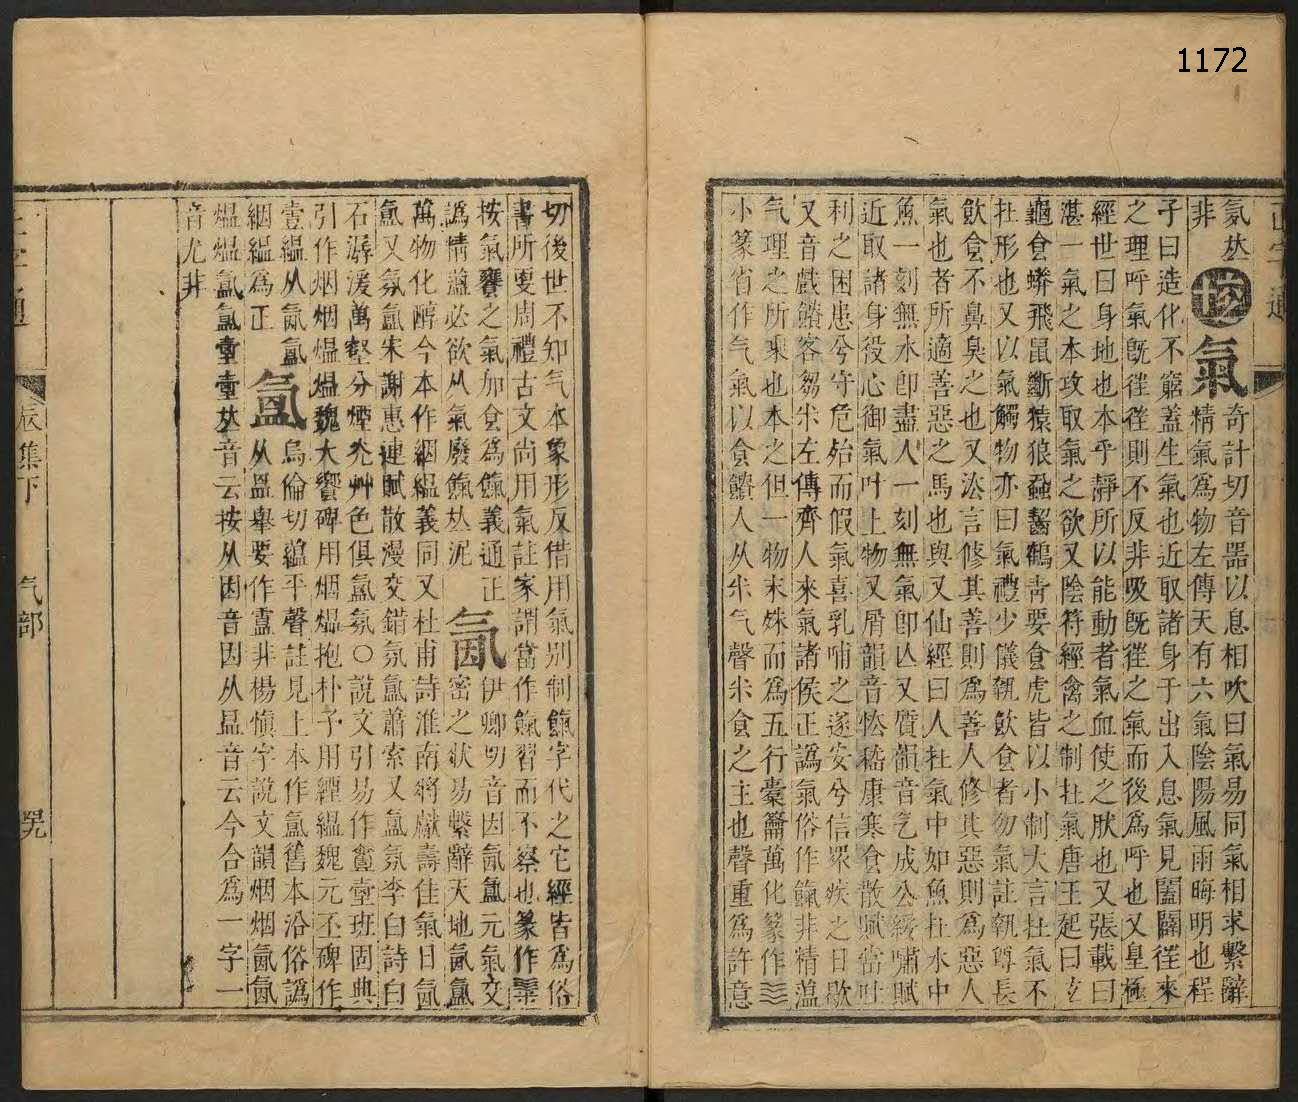 1172
正字通
氦𠀤
非
氣
奇計切音器以息相吹曰氣易同氣相求繫辭
精氣爲物左傳天有六氣陰陽風雨晦明也程
子曰造化不窮蓋生氣也近取諸身于出入息氣見闔闢徃來
之理呼氣旣徃徃則不反非吸旣徃之氣而後爲呼也又皇極
經世曰身地也本乎靜所以能動者氣血使之肰也又張載曰
湛一氣之本攻取氣之欲又陰符經禽之制在氣唐王起曰
龜食蟒飛鼠斷猿狼蝨齧鶴靑要食虎皆以小制大言在氣不
在形也又以氣觸物亦曰氣禮少儀執飮食者勿氣註執尊長
飮食不鼻臭之也又法言修其善則爲善人修其惡則爲惡人
氣也者所適善惡之馬也與又仙經曰人在氣中如魚在水中
魚一刻無水卽盡人一刻無氣卽亾又質韻音乞成公綏嘯賦
近取諸身役心御氣叶上物又屑韻音嵇康寒食散賦當吐
利之困患兮守危殆而假氣喜乳哺之遂安兮信衆疾之日歇
又音戲饋客芻米左傳齊人來氣諸侯正譌氣俗作餼非精薀
气理之所乘也本之但一物末殊而爲五行槖籥萬化篆作
小篆省作气氣以食饋人从米气聲米食之主也聲重爲許意
切後世不知气本象形反借用氣別制餼字代之它經皆爲俗
書所叓周禮古文尚用氣註家謂當作餼習而不察也篆作
按氣饔之氣加食爲餼義通正
譌精薀必欲从氣廢餼𠀤泥
氤
伊卿切音因氤氳元氣交
密之狀易繫辭天地氤氳
萬物化醇今本作絪縕義同又杜甫詩淮南將獻壽佳氣日氤
氳又氛氳宋謝惠連賦散漫交錯氛氳蕭索又氳氛李白詩白
石潺湲萬壑分煙光艸色俱氳氛〇說文引易作壹班固典
引作烟烟熅熅魏大饗碑用烟熅抱朴子用緸縕魏元丕碑作
壹縕从氤
氳
烏倫切縕平聲註見上本作氳舊本沿俗譌
絪縕爲正
从昷舉要作靊非楊愼字說文韻烟烟氤氤
熅熅氳氳壹壹𠀤音云按从因音因从昷音云今合爲一字一
音尤非
正字通
辰集下
气部